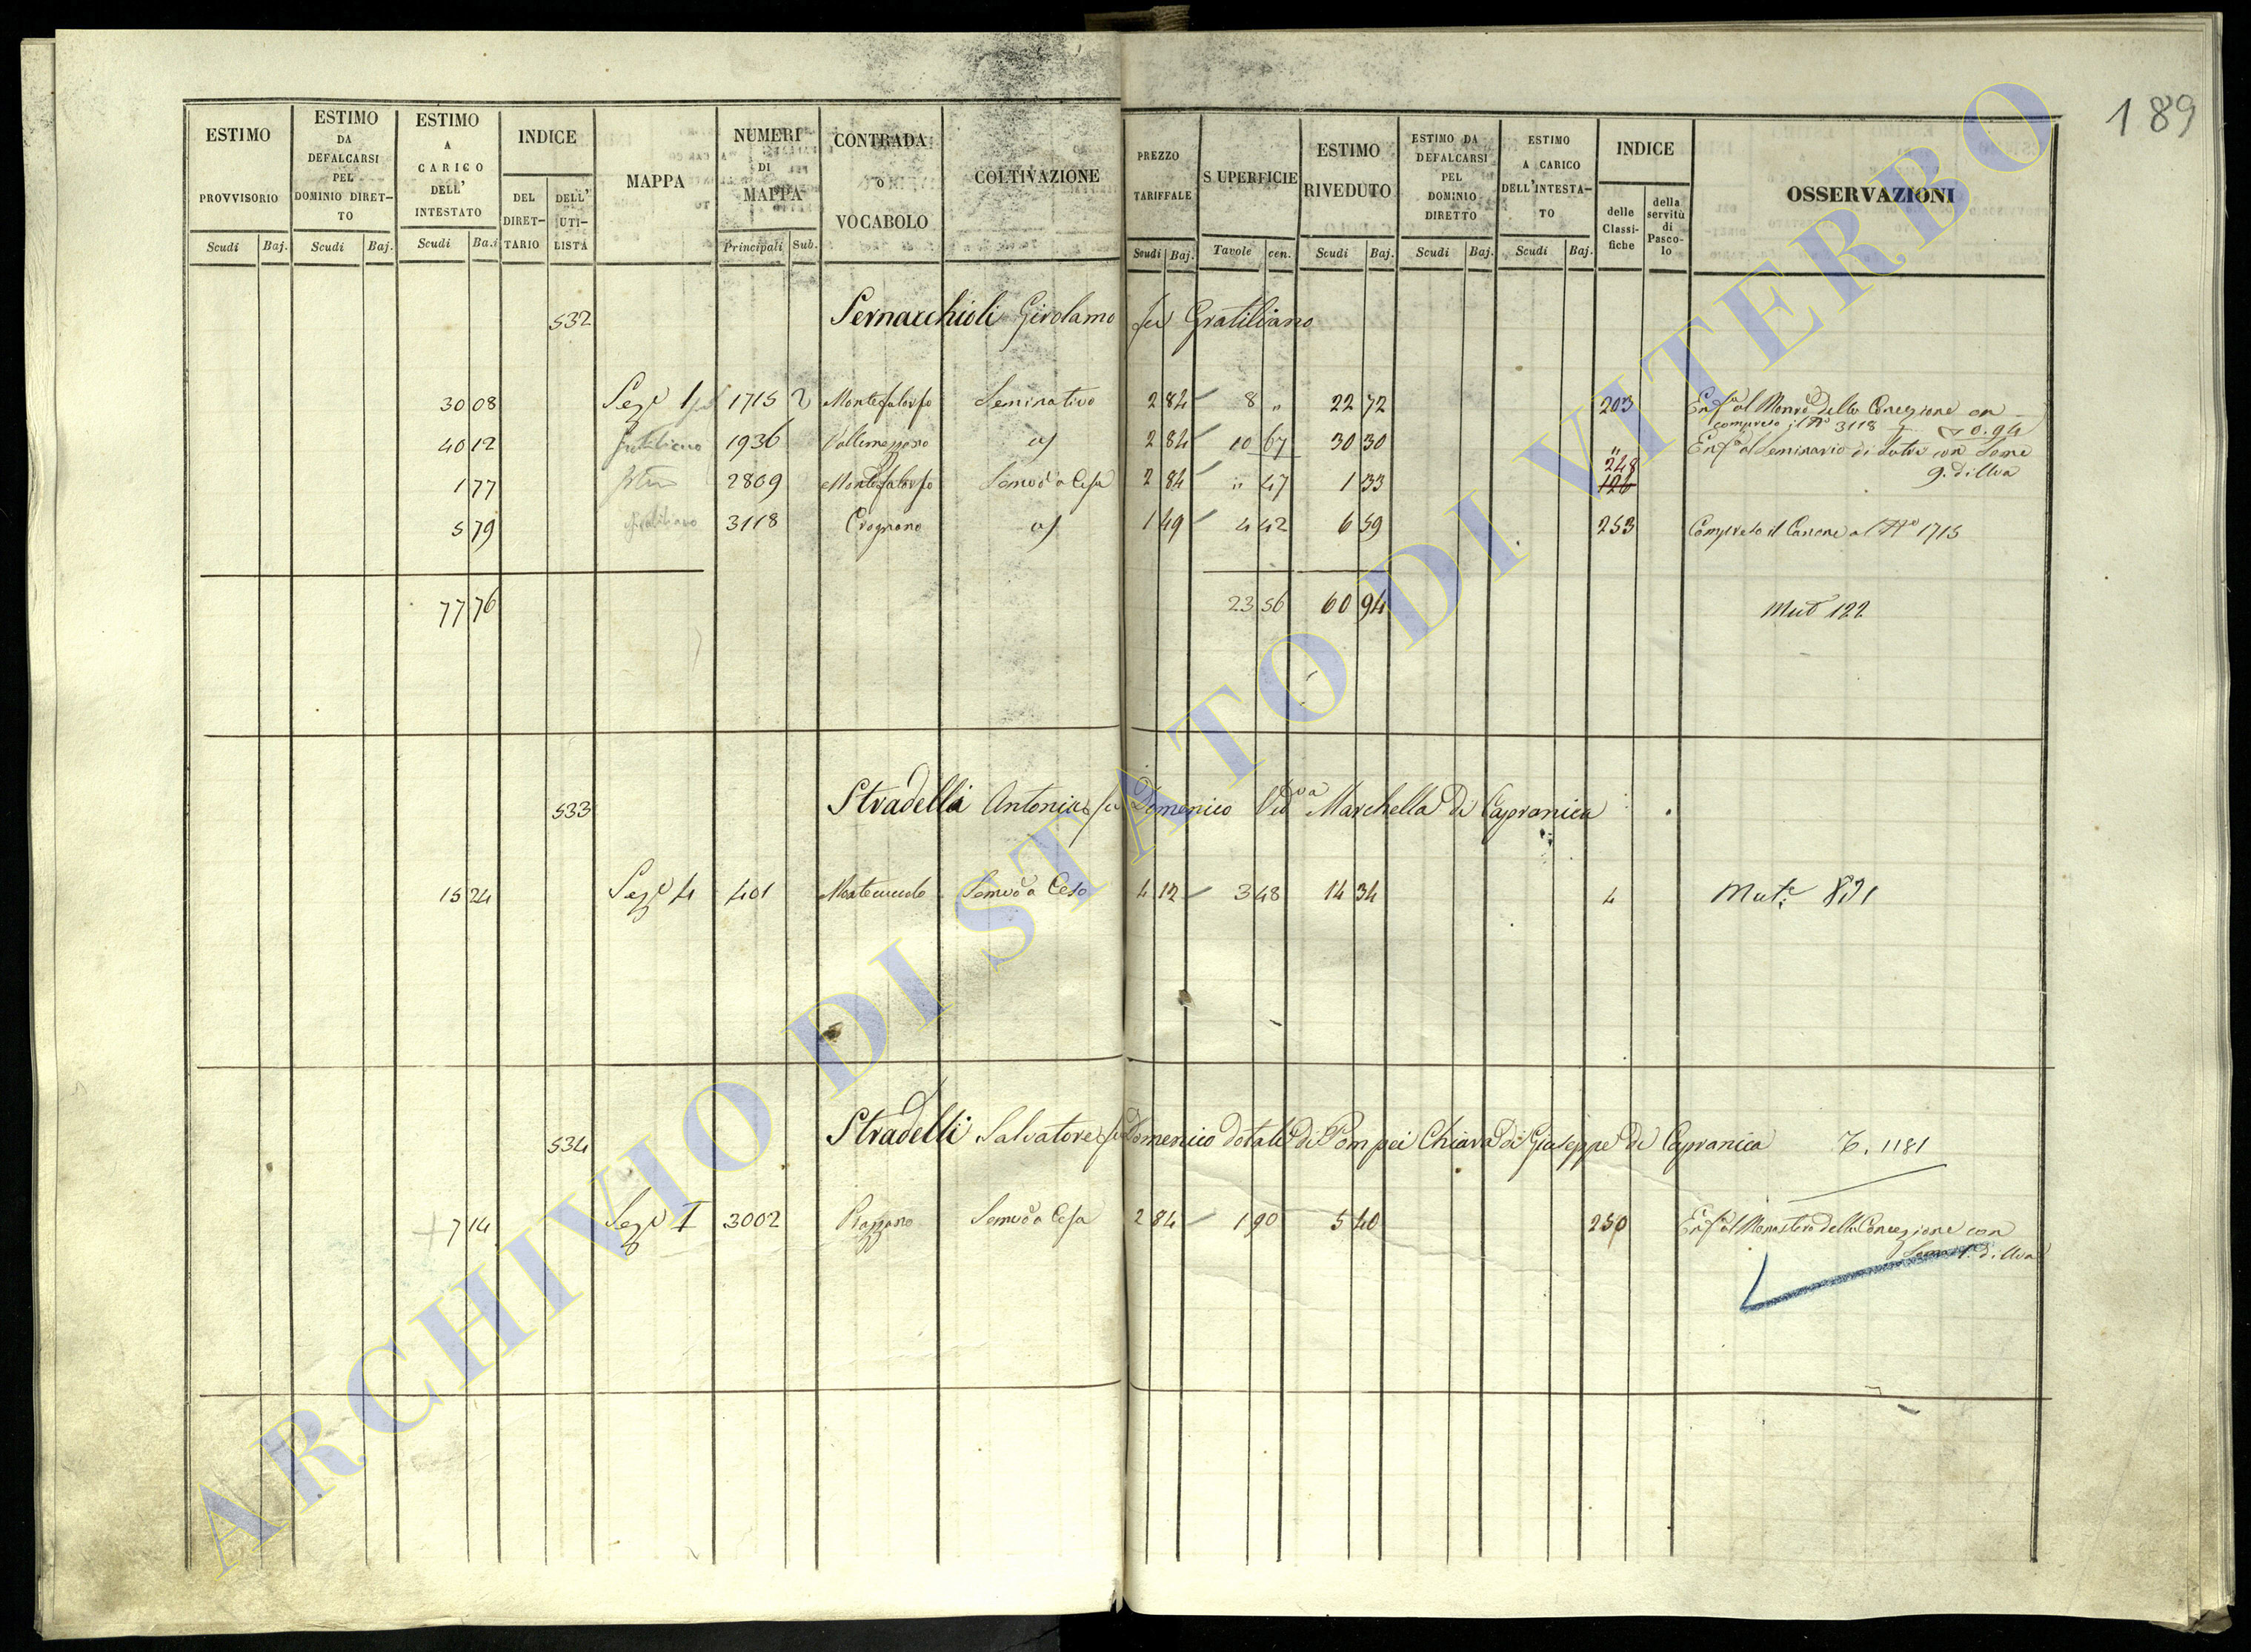 189
ESTIMO PROVVISORIO Scudi Baj.
ESTIMO DA DEFALCARSI PEL DOMINIO DIRET-TO Scudi Baj.
ESTIMO A CARICO DELL' INTESTATO Scudi Baj.
INDICE DEL DIRET-TARIO DELL' UTI-LISTA
MAPPA
NUMERI DI MAPPA Principali Sub.
CONTRADA O VOCABOLO
COLTIVAZIONE
PREZZO TARIFFALE Scudi Baj.
SUPERFICIE Tavole cen.
ESTIMO RIVEDUTO Scudi Baj.
ESTIMO DA DEFALCARSI PEL DOMINIO DIRETTO Scudi Baj.
ESTIMO A CARICO DELL'INTESTA-TO Scudi Baj.
INDICE delle Classi-fiche della servitù di Pasco-lo
OSSERVAZIONI
532 Sernacchioli Girolamo fu Gratiliano
30 08 Sez.e 1 1715 2 Montefalorso Seminativo 2 84 8 " 22 72 203 Enf.a al Mon.ro della Concezione con
compreso il N° 3118 0.94
40 12 1936 Vallemezzano a/ 2 84 10 67 30 30 " Enf.a al Seminario di Sutri con Some
9. di Uva
1 77 2809 Montefalorso Semvo a Cesa 2 84 " 47 1 33 248 126
5 79 3118 Crognano a/ 1 49 4 42 6 59 253 Compreso il Canone al N° 1715
77 76 23 56 60 94 Mut 122
533 Stradella Antonia fu Domenico Ved.va Marchella di Capranica
15 24 Sez.e 4 401 Montecucolo Semvo a Cesa 4 12 3 48 14 34 4 Mut.e 891
534 Stradelli Salvatore fu Domenico dotale di Pompei Chiara di Giuseppe di Capranica T. 1181
7 14 Sez.e I 3002 Piazzano Semvo a Cesa 2 84 1 90 5 40 250 Enf.a al Monastero della Concezione con
Soma 1. di Uva
ARCHIVIO DI STATO DI VITERBO